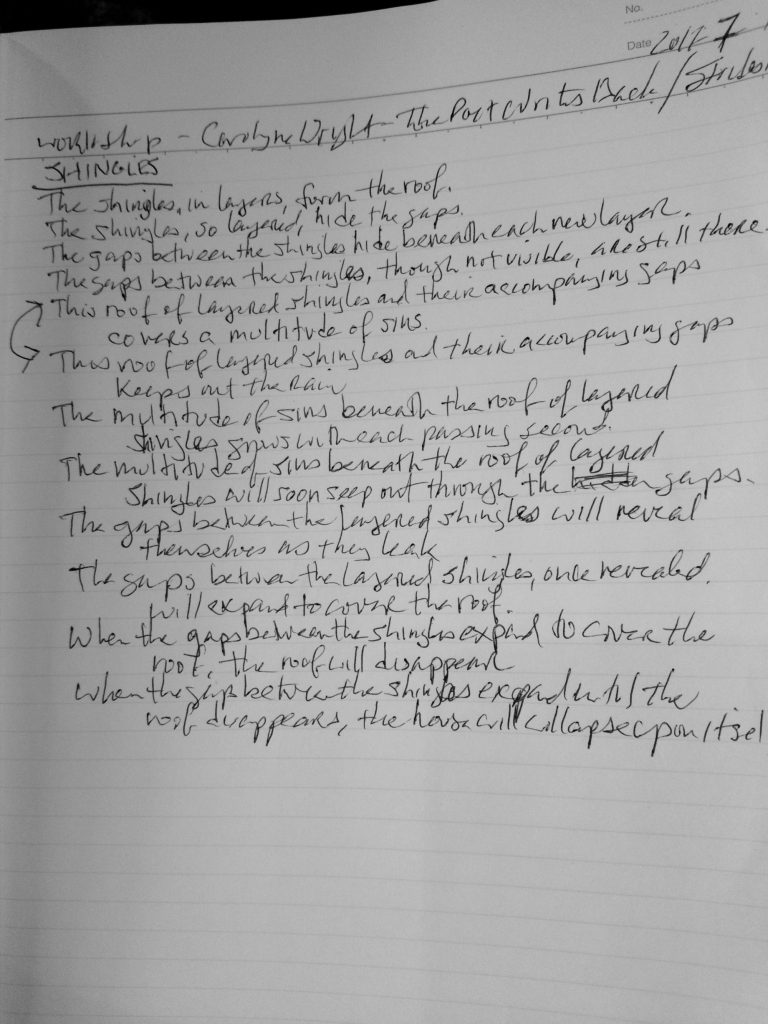 No.
Date 2017 7
Workshop - Carolyne Wright - The Poet Writes Back / Strides
SHINGLES
The shingles, in layers, form the roof.
The shingles, so layered, hide the gaps.
The gaps between the shingles hide beneath each new layer.
The gaps between the shingles, though not visible, are still there.
This roof of layered shingles and their accompanying gaps
covers a multitude of sins.
This roof of layered shingles and their accompanying gaps
keeps out the rain
The multitude of sins beneath the roof of layered
shingles grows with each passing second.
The multitude of sins beneath the roof of layered
shingles will soon seep out through the hidden gaps.
The gaps between the layered shingles will reveal
themselves as they leak
The gaps between the layered shingles, once revealed,
will expand to cover the roof.
When the gaps between the shingles expand to cover the
roof, the roof will disappear
When the gaps between the shingles expand until the
roof disappears, the house will collapse upon itsel